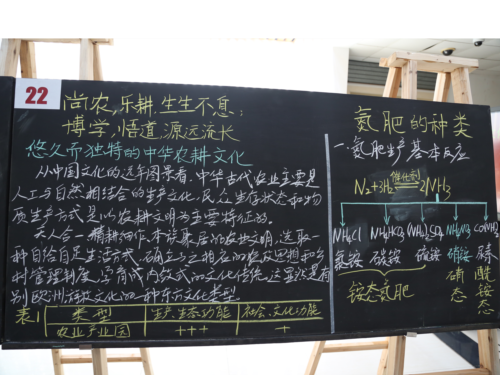 22
尚农,乐耕,生生不息;
博学,悟道,源远流长
悠久而独特的中华农耕文化
从中国文化的历年图景看,中华古代农业主要是
人工与自然相结合的生产文化,民众生活状态和物
质生产方式是以农耕文明为主要特征的。
天人合一 精耕细作、本族聚居的农业文明,选取一
种自给自足生活方式,确立与之相应的农政思想和乡
村管理制度,孕育成内敛式的文化传统,这显然是有
别欧洲游牧文化的一种东方文化类型
表1 类型 生产、生态功能 社会、文化功能
农业产业园 +++ +
氮肥的种类
一、氮肥生产基本反应
催化剂
N₂+3H₂ 2NH₃
NH₄Cl NH₄HCO₃ (NH₄)₂SO₄ NH₄NO₃ CO(NH₂)₂
氯铵 碳铵 硫铵 硝铵 尿素
铵态氮肥
硝态
酰铵态